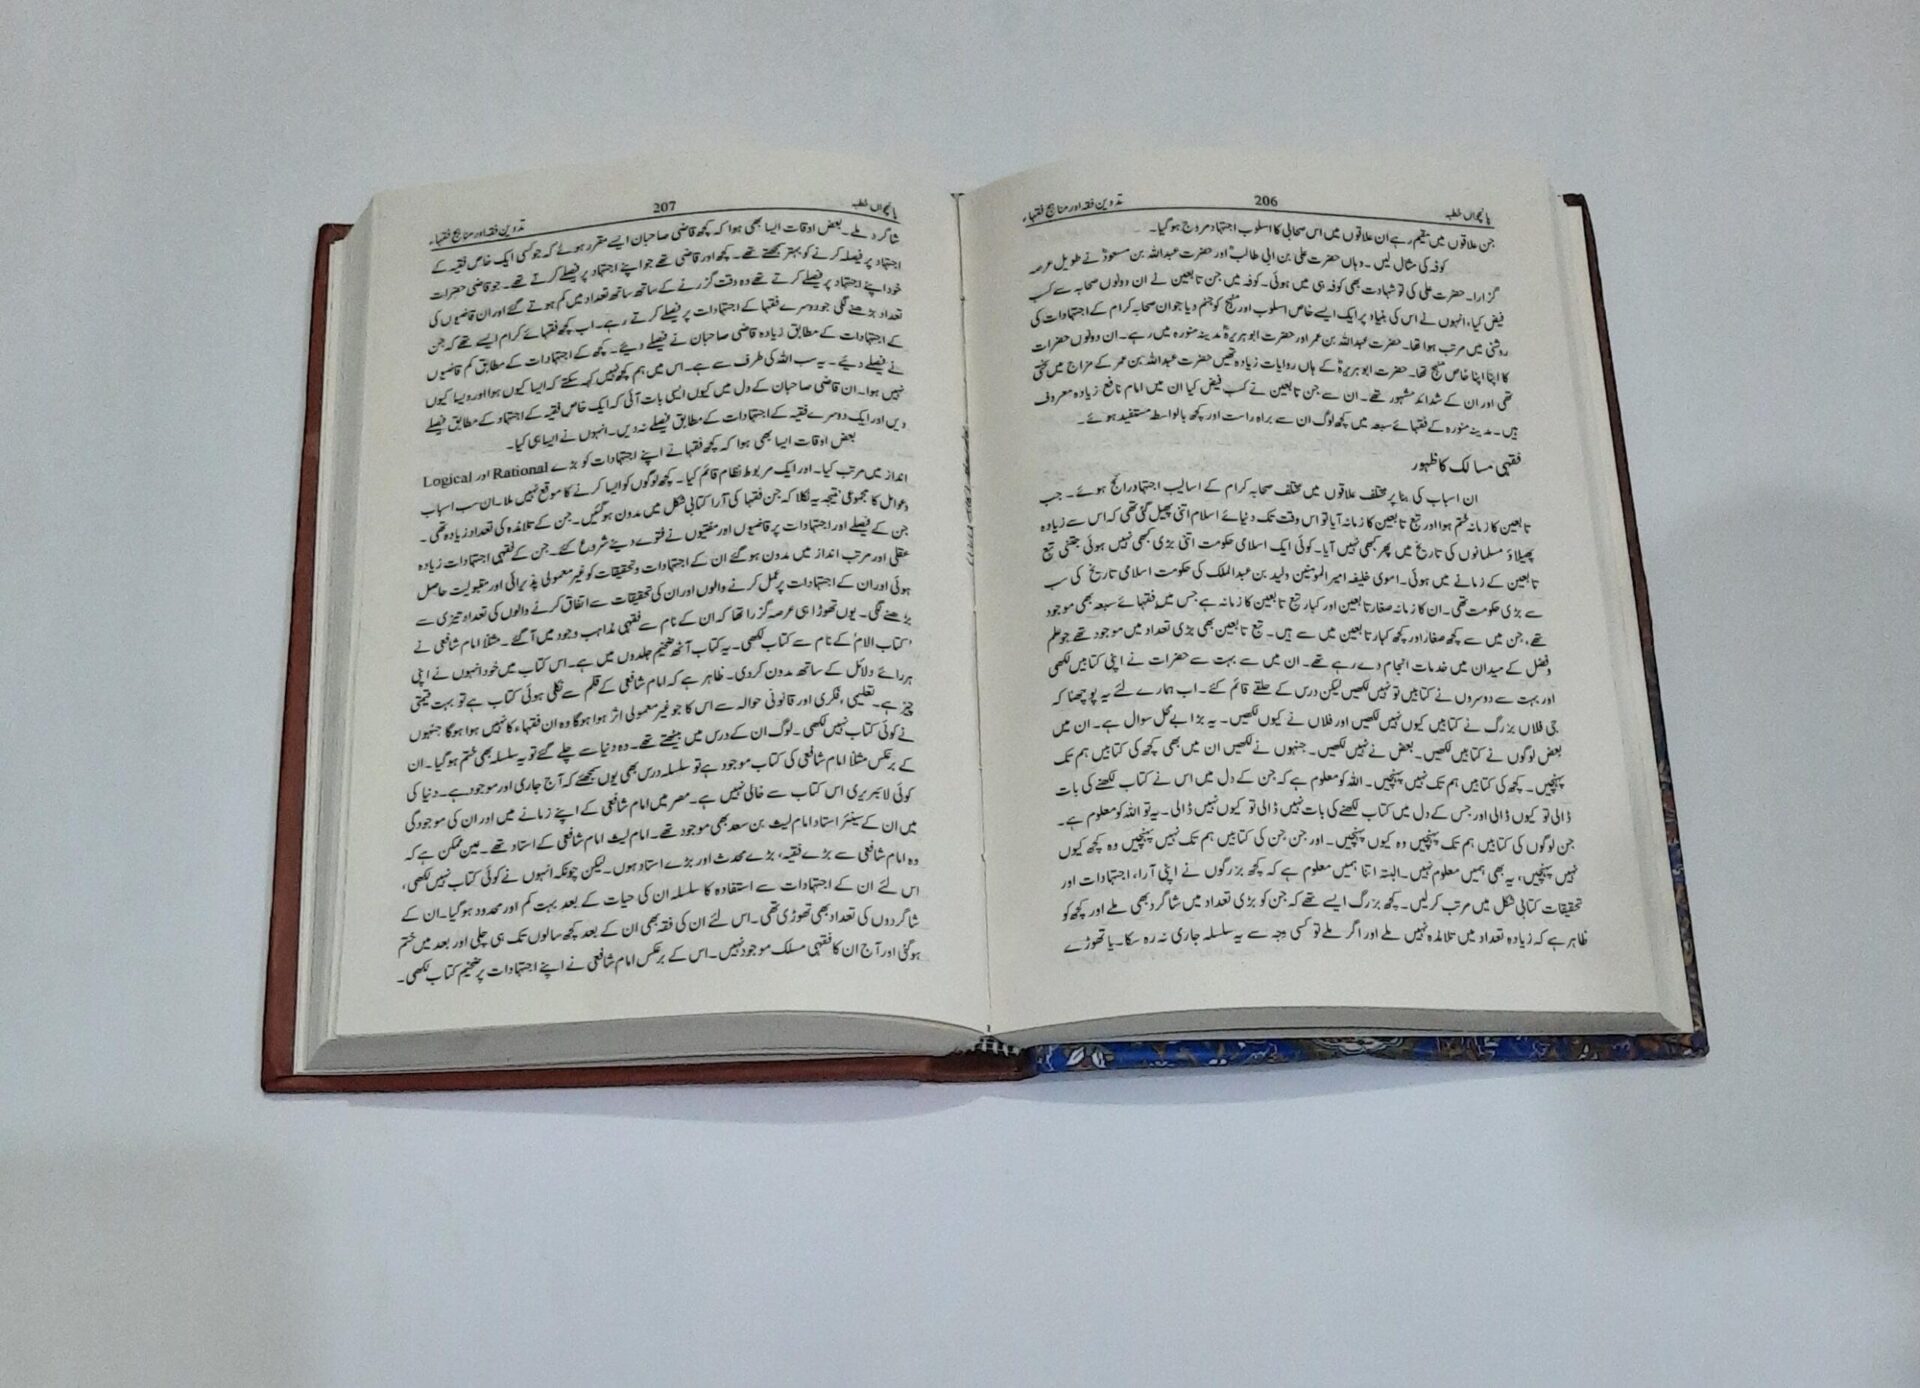 پانچواں خطبہ 206 تدوین فقہ اور مناہج فقہاء
جن علاقوں میں مقیم رہے ان علاقوں میں اس صحابی کا اسلوب اجتہاد مروج ہو گیا۔
کوفہ کی مثال لیں۔ وہاں حضرت علی بن ابی طالبؓ اور حضرت عبداللہ بن مسعودؓ نے طویل عرصہ
گزارا۔ حضرت علی کی تو شہادت بھی کوفہ ہی میں ہوئی۔ کوفہ میں جن تابعین نے ان دونوں صحابہ سے کسب
فیض کیا، انہوں نے اس کی بنیاد پر ایک ایسے خاص اسلوب اور منہج کو جنم دیا جو ان صحابہ کرام کے اجتہادات کی
روشنی میں مرتب ہوا تھا۔ حضرت عبداللہ بن عمر اور حضرت ابوہریرہؓ مدینہ منورہ میں رہے۔ ان دونوں حضرات
کا اپنا اپنا خاص منہج تھا۔ حضرت ابوہریرہؓ کے ہاں روایات زیادہ تھیں حضرت عبداللہ بن عمر کے مزاج میں سختی
تھی اور ان کے شدائد مشہور تھے۔ ان سے جن تابعین نے کسب فیض کیا ان میں امام نافع زیادہ معروف
ہیں۔ مدینہ منورہ کے فقہائے سبعہ میں کچھ لوگ ان سے براہ راست اور کچھ بالواسطہ مستفید ہوئے۔
فقہی مسالک کا ظہور
ان اسباب کی بنا پر مختلف علاقوں میں مختلف صحابہ کرام کے اسالیب اجتہاد رائج ہوئے۔ جب
تابعین کا زمانہ ختم ہوا اور تبع تابعین کا زمانہ آیا تو اس وقت تک دنیائے اسلام اتنی پھیل گئی تھی کہ اس سے زیادہ
پھیلاؤ مسلمانوں کی تاریخ میں پھر کبھی نہیں آیا۔ کوئی ایک اسلامی حکومت اتنی بڑی کبھی نہیں ہوئی جتنی تبع
تابعین کے زمانے میں ہوئی۔ اموی خلیفہ امیر المومنین ولید بن عبدالملک کی حکومت اسلامی تاریخ کی سب
سے بڑی حکومت تھی۔ ان کا زمانہ صغار تابعین اور کبار تبع تابعین کا زمانہ ہے جس میں فقہائے سبعہ بھی موجود
تھے، جن میں سے کچھ صغار اور کچھ کبار تابعین میں سے ہیں۔ تبع تابعین بھی بڑی تعداد میں موجود تھے جو علم
وفضل کے میدان میں خدمات انجام دے رہے تھے۔ ان میں سے بہت سے حضرات نے اپنی کتابیں لکھی
اور بہت سے دوسروں نے کتابیں تو نہیں لکھیں لیکن درس کے حلقے قائم کئے۔ اب ہمارے لئے یہ پوچھنا کہ
جی فلاں بزرگ نے کتابیں کیوں نہیں لکھیں اور فلاں نے کیوں لکھیں۔ یہ بڑا بے محل سوال ہے۔ ان میں
بعض لوگوں نے کتابیں لکھیں۔ بعض نے نہیں لکھیں۔ جنہوں نے لکھیں ان میں بھی کچھ کی کتابیں ہم تک
پہنچیں۔ کچھ کی کتابیں ہم تک نہیں پہنچیں۔ اللہ کو معلوم ہے کہ جن کے دل میں اس نے کتاب لکھنے کی بات
ڈالی تو کیوں ڈالی اور جس کے دل میں کتاب لکھنے کی بات نہیں ڈالی تو کیوں نہیں ڈالی۔ یہ تو اللہ کو معلوم ہے۔
جن لوگوں کی کتابیں ہم تک پہنچیں وہ کیوں پہنچیں۔ اور جن جن کی کتابیں ہم تک نہیں پہنچیں وہ کچھ کیوں
نہیں پہنچیں، یہ بھی ہمیں معلوم نہیں۔ البتہ اتنا ہمیں معلوم ہے کہ کچھ بزرگوں نے اپنی آراء، اجتہادات اور
تحقیقات کتابی شکل میں مرتب کر لیں۔ کچھ بزرگ ایسے تھے کہ جن کو بڑی تعداد میں شاگرد بھی ملے اور کچھ کو
ظاہر ہے کہ زیادہ تعداد میں تلامذہ نہیں ملے اور اگر ملے تو کسی وجہ سے یہ سلسلہ جاری نہ رہ سکا۔ یا تھوڑے
پانچواں خطبہ 207 تدوین فقہ اور مناہج فقہاء
شاگرد ملے۔ بعض اوقات ایسا بھی ہوا کہ کچھ قاضی صاحبان ایسے مقرر ہوئے کہ جو کسی ایک خاص فقیہ کے
اجتہاد پر فیصلہ کرنے کو بہتر سمجھتے تھے۔ کچھ اور قاضی تھے جو اپنے اجتہاد پر فیصلے کرتے تھے۔ جو قاضی حضرات
خود اپنے اجتہاد پر فیصلے کرتے تھے وہ وقت گزرنے کے ساتھ ساتھ تعداد میں کم ہوتے گئے اور ان قاضیوں کی
تعداد بڑھنے لگی جو دوسرے فقہا کے اجتہادات پر فیصلے کرتے رہے۔ اب کچھ فقہائے کرام ایسے تھے کہ جن
کے اجتہادات کے مطابق زیادہ قاضی صاحبان نے فیصلے دیئے۔ کچھ کے اجتہادات کے مطابق کم قاضیوں
نے فیصلے دیئے۔ یہ سب اللہ کی طرف سے ہے۔ اس میں ہم کچھ نہیں کہہ سکتے کہ ایسا کیوں ہوا اور ویسا کیوں
نہیں ہوا۔ ان قاضی صاحبان کے دل میں کیوں ایسی بات آئی کہ ایک خاص فقیہ کے اجتہاد کے مطابق فیصلے
دیں اور ایک دوسرے فقیہ کے اجتہادات کے مطابق فیصلے نہ دیں۔ انہوں نے ایسا ہی کیا۔
بعض اوقات ایسا بھی ہوا کہ کچھ فقہا نے اپنے اجتہادات کو بڑے Rational اور Logical
انداز میں مرتب کیا۔ اور ایک مربوط نظام قائم کیا۔ کچھ لوگوں کو ایسا کرنے کا موقع نہیں ملا۔ ان سب اسباب
وعوامل کا مجموعی نتیجہ یہ نکلا کہ جن فقہا کی آرا کتابی شکل میں مدون ہو گئیں۔ جن کے تلامذہ کی تعداد زیادہ تھی۔
جن کے فیصلے اور اجتہادات پر قاضیوں اور مفتیوں نے فتوے دینے شروع کئے۔ جن کے فقہی اجتہادات زیادہ
عقلی اور مرتب انداز میں مدون ہو گئے ان کے اجتہادات وتحقیقات کو غیر معمولی پذیرائی اور مقبولیت حاصل
ہوئی اور ان کے اجتہادات پر عمل کرنے والوں اور ان کی تحقیقات سے اتفاق کرنے والوں کی تعداد تیزی سے
بڑھنے لگی۔ یوں تھوڑا ہی عرصہ گزرا تھا کہ ان کے نام سے فقہی مذاہب وجود میں آ گئے۔ مثلاً امام شافعی نے
'کتاب الام' کے نام سے کتاب لکھی۔ یہ کتاب آٹھ ضخیم جلدوں میں ہے۔ اس کتاب میں خود انہوں نے اپنی
ہر رائے دلائل کے ساتھ مدون کر دی۔ ظاہر ہے کہ امام شافعی کے قلم سے نکلی ہوئی کتاب ہے تو بہت قیمتی
چیز ہے۔ تعلیمی، فکری اور قانونی حوالہ سے اس کا جو غیر معمولی اثر ہوا ہوگا وہ ان فقہاء کا نہیں ہوا ہوگا جنہوں
نے کوئی کتاب نہیں لکھی۔ لوگ ان کے درس میں بیٹھتے تھے۔ وہ دنیا سے چلے گئے تو یہ سلسلہ بھی ختم ہو گیا۔ ان
کے برعکس مثلاً امام شافعی کی کتاب موجود ہے تو سلسلہ درس بھی یوں سمجھئے کہ آج جاری اور موجود ہے۔ دنیا کی
کوئی لائبریری اس کتاب سے خالی نہیں ہے۔ مصر میں امام شافعی کے اپنے زمانے میں اور ان کی موجودگی
میں ان کے سینئر استاد امام لیث بن سعد بھی موجود تھے۔ امام لیث امام شافعی کے استاد تھے۔ عین ممکن ہے کہ
وہ امام شافعی سے بڑے فقیہ، بڑے محدث اور بڑے استاد ہوں۔ لیکن چونکہ انہوں نے کوئی کتاب نہیں لکھی،
اس لئے ان کے اجتہادات سے استفادہ کا سلسلہ ان کی حیات کے بعد بہت کم اور محدود ہو گیا۔ ان کے
شاگردوں کی تعداد بھی تھوڑی تھی۔ اس لئے ان کی فقہ بھی ان کے بعد کچھ سالوں تک ہی چلی اور بعد میں ختم
ہو گئی اور آج ان کا فقہی مسلک موجود نہیں۔ اس کے برعکس امام شافعی نے اپنے اجتہادات پر ضخیم کتاب لکھی۔